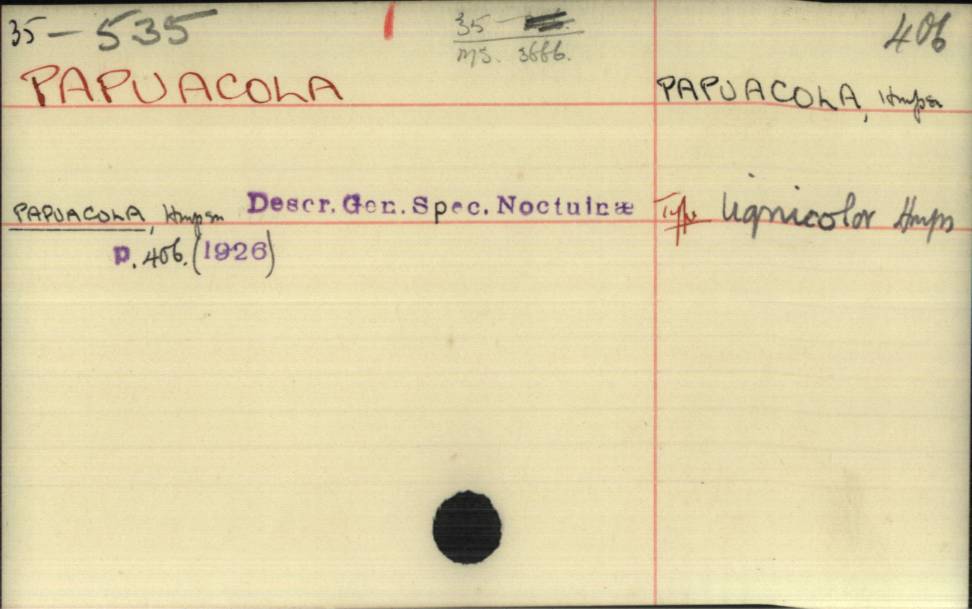 35 - 535
35
MS. 3666.
406
PAPUACOLA
PAPUACOLA, Hmpsn
PAPUACOLA, Hmpsn Descr. Gen. Spec. Noctuinæ
Type lignicolor Hmps
p. 406. (1926)